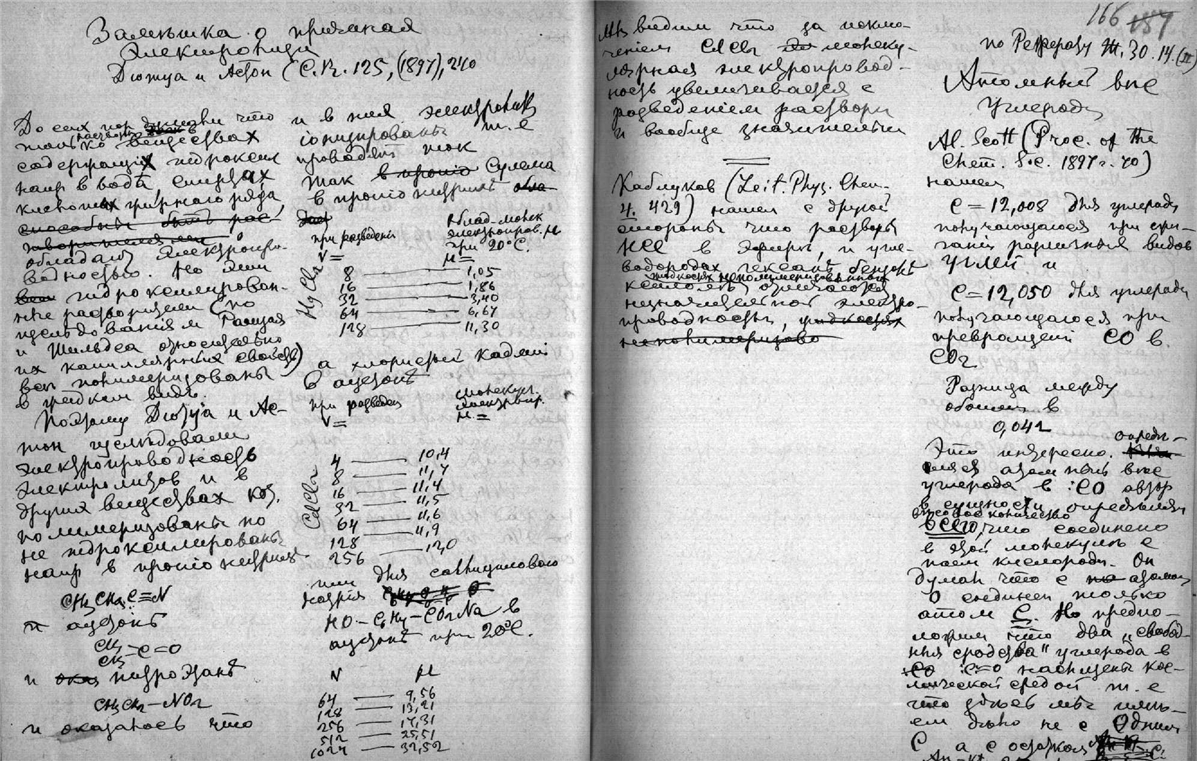 Заметка о причинах
Электровоци
Дютуа и Астон (C.R. 125, (1897), 240
До сих пор думали что
только в веществах
содержащих гидроксил
напр в водѣ, спиртах
кислотах жирного ряда,
способны быть рас-
творителями
обладают электропро-
водностью. Но эти
гидроксилирован-
ные растворители (по
изслѣдованіям Рамзая
и Шильдса относительно
их капиллярных свойств)
всѣ полимеризованы
в жидком видѣ.
Поэтому Дютуа и Ас-
тон изслѣдовали
электропроводность
электролитов и в
других веществах кот.
полимеризованы но
не гидроксилированы
напр в пропіонитрилѣ
CH3CH2C≡N
и ацетонѣ
CH3
CH3-C=O
и нитроэтанѣ
CH3CH2-NO2
и оказалось что
и в них электролиты
іонизированы т.е
проводят ток
Так Сулема
в пропіонитрилѣ
при разведеніи
V=
молек
электропров. μ
при 20°C.
μ=
HgCl2
8 — 1,05
16 — 1,86
32 — 3,40
64 — 6,67
128 — 11,30
а хлористый кадмій
в ацетонѣ
при разведен
V=
молекул.
электропр.
μ=
CdCl2
4 — 10,4
8 — 11,7
16 — 11,4
32 — 11,5
64 — 11,6
128 — 11,9
256 — 12,0
или для салицилового
натрия
HO-C6H4-CO2Na в
ацетонѣ при 20°C.
N μ
64 — 9,56
128 — 13,21
256 — 17,31
512 — 25,51
1024 — 32,52
Мы видим что за исклю-
ченіем CdCl2 молеку-
лярная электропровод-
ность увеличивается с
разведеніем раствора
и вообще значительна
Каблуков (Zeit. Phys. Chem.
4. 429) нашел с другой
стороны что растворы
HCl в эфирѣ, и угле-
водородах гексанѣ бензолѣ
жидкостях неполимеризованных
ксилолѣ отличаются
незначительной электро-
проводностью, жидкостях
неполимеризова
166 157
по Реферату Ж. 30. 14. (II)
Атомный вес
Углерода
Al. Scott (Proc. of the
Chem. Soc. 1897 г. 40)
нашел
C = 12,008 для углерода
получающагося при сжи-
гании различных видов
углей и
C = 12,050 для углерода
получающагося при
превращеніи CO в
CO2
Разница между
обоими в
0,042
Это интересно. Опреде-
ляя атомный вес
углерода в :CO автор
в сущности определял
количество
всего, что соединено
в этой молекулѣ с
паем кислорода. Он
думал что с атомом
O соединен только
атом C. Но предпо-
ложим что два „свобод-
ныя сродства" углерода в
:C=O насыщены кос-
мической средой т.е
что здесь мы имѣ-
ем дѣло не с одним
C а с остатком